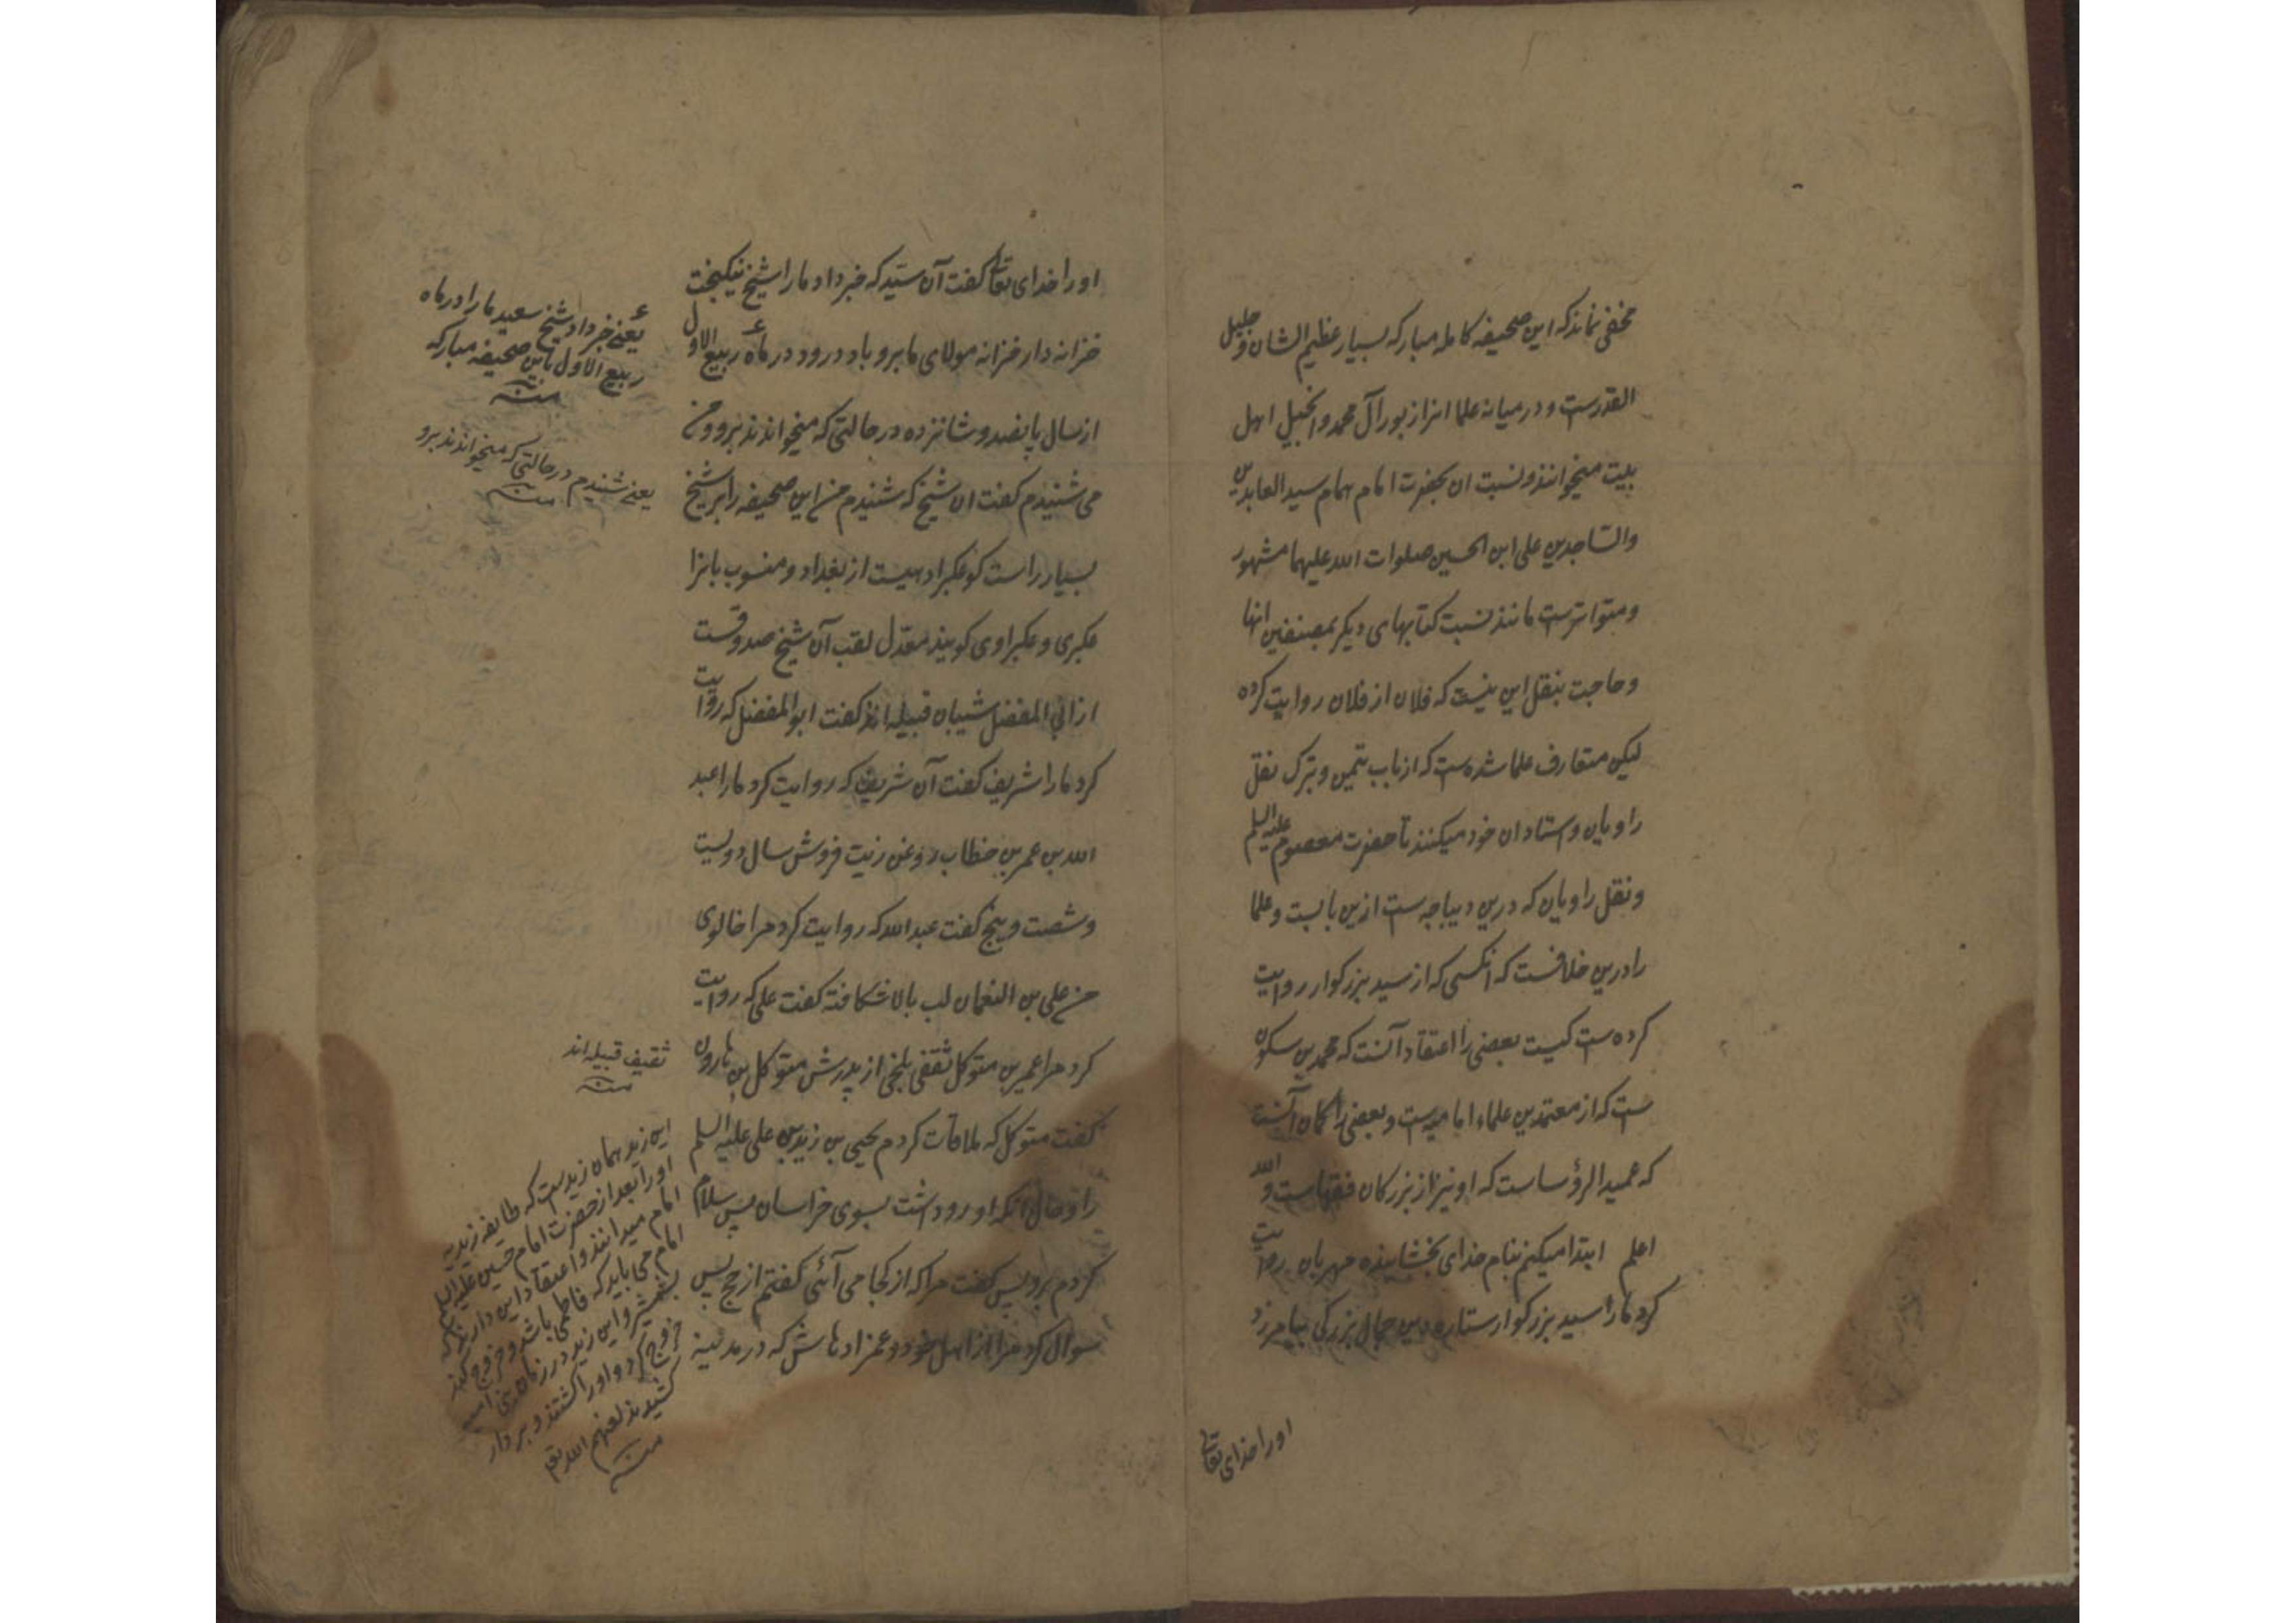 مخفی نماند که این صحیفه کامله مبارکه بسیار عظیم الشان و جلیل
القدرست و در میانه علما انرا زبور آل محمد و انجیل اهل
بیت میخوانند و نسبت ان بحضرت امام همام سید العابدین
والساجدین علی ابن الحسین صلوات الله علیهما مشهور
و متواترست مانند نسبت کتابهای دیگر بمصنفین انها
و حاجت بنقل این نیست که فلان از فلان روایت کرده
لیکن متعارف علما شده ست که از باب تیمن و تبرک نقل
راویان و استادان خود میکنند تا حضرت معصوم علیه السلم
و نقل راویان که درین دیباجه ست ازین بابست و علما
را درین خلافست که انکسی که از سید بزرکوار روایت
کرده ست کیست بعضی را اعتقاد آنست که محمد بن سکون
ست که از معتمدین علماء امامیه ست و بعضی را کمان آنست
که عمید الرؤساست که او نیز از بزرکان فقهاست والله
اعلم ابتدا میکنم بنام خدای بخشاینده مهربان روایت
کرد ما را سید بزرکوار ستاره دین جمال بزرکی بیامرزد
اورا خدای تعالی
اورا خدای تعالی کفت آن سید که خبر داد ما را شیخ نیکبخت
خزانه دار خزانه مولای ما برو باد درود در ماه ربیع الاول
از سال پانصد و شانزده در حالتی که میخواندند برو و من
می شنیدم کفت ان شیخ که شنیدم من این صحیفه را بر شیخ
بسیار راست کو عکبرا دهیست از بغداد و منسوب بانرا
عکبری و عکبراوی کویند معدل لقب آن شیخ صدوقست
از ابی المفضل شیبان قبیله اند کفت ابو المفضل که روایت
کرد ما را شریف کفت آن شریف که روایت کرد ما را عبد
الله بن عمر بن خطاب روغن زیت فروش سال دویست
و شصت و پنج کفت عبد الله که روایت کرد مرا خالوی
من علی بن النعمان لب بالا شکافته کفت علی که روایت
کرد مرا عمیر بن متوکل ثقفی بلخی از پدرش متوکل بن هارون
کفت متوکل که ملاقات کردم یحیی بن زید بن علی علیه السلم
را و حال انکه او رو داشت بسوی خراسان پس سلام
کردم برو پس کفت مرا که از کجا می آئی کفتم از حج پس
سوال کرد مرا از اهل خود و عمزادهاش که در مدینه
یعنی خبر داد شیخ سعید ما را در ماه
ربیع الاول باین صحیفه مبارکه
منه
یعنی شنیدم در حالتی که میخواندند برو
منه
ثقیف قبیله اند
منه
این زید همان زیدست که طایفه زیدیه
اورا بعد از حضرت امام حسین علیه السلم
امام میدانند و اعتقاد این دارند که
امام می باید که فاطمی باشد و خروج کند
بشمشیر و این زید در زمان بنی امیه
خروج کرد و اورا کشتند و بر دار
کشیدند لعنهم الله تع
منه